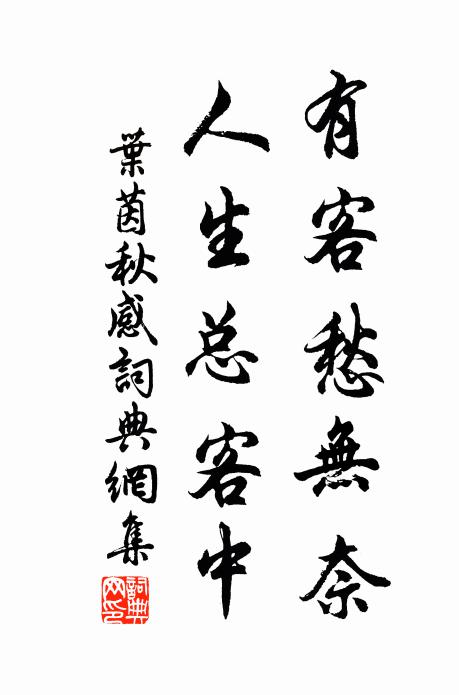 有客愁無奈
人生总客中
葉茵秋感詞典網集
詞典網印